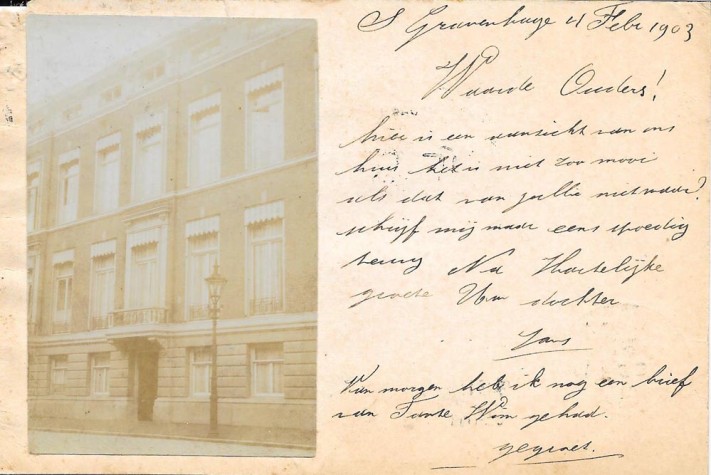 S Gravenhage 4 Febr 1903
Waarde Ouders!
hier is een aanzicht van ons
huis het is niet zoo mooi
als dat van jullie nietwaar?
schrijf mij maar eens spoedig
terug Na Hartelijke
groete Uw dochter
Jans
Van morgen heb ik nog een brief
van Tante Wim gehad.
gegroet.